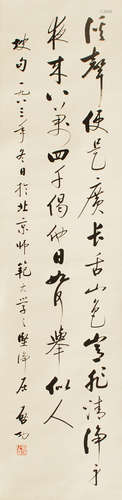 溪聲便是廣長舌山色豈非清淨身
夜来八萬四千偈他日如何舉似人
坡句一九八三年冬日於北京師範大學之堅淨居啓功